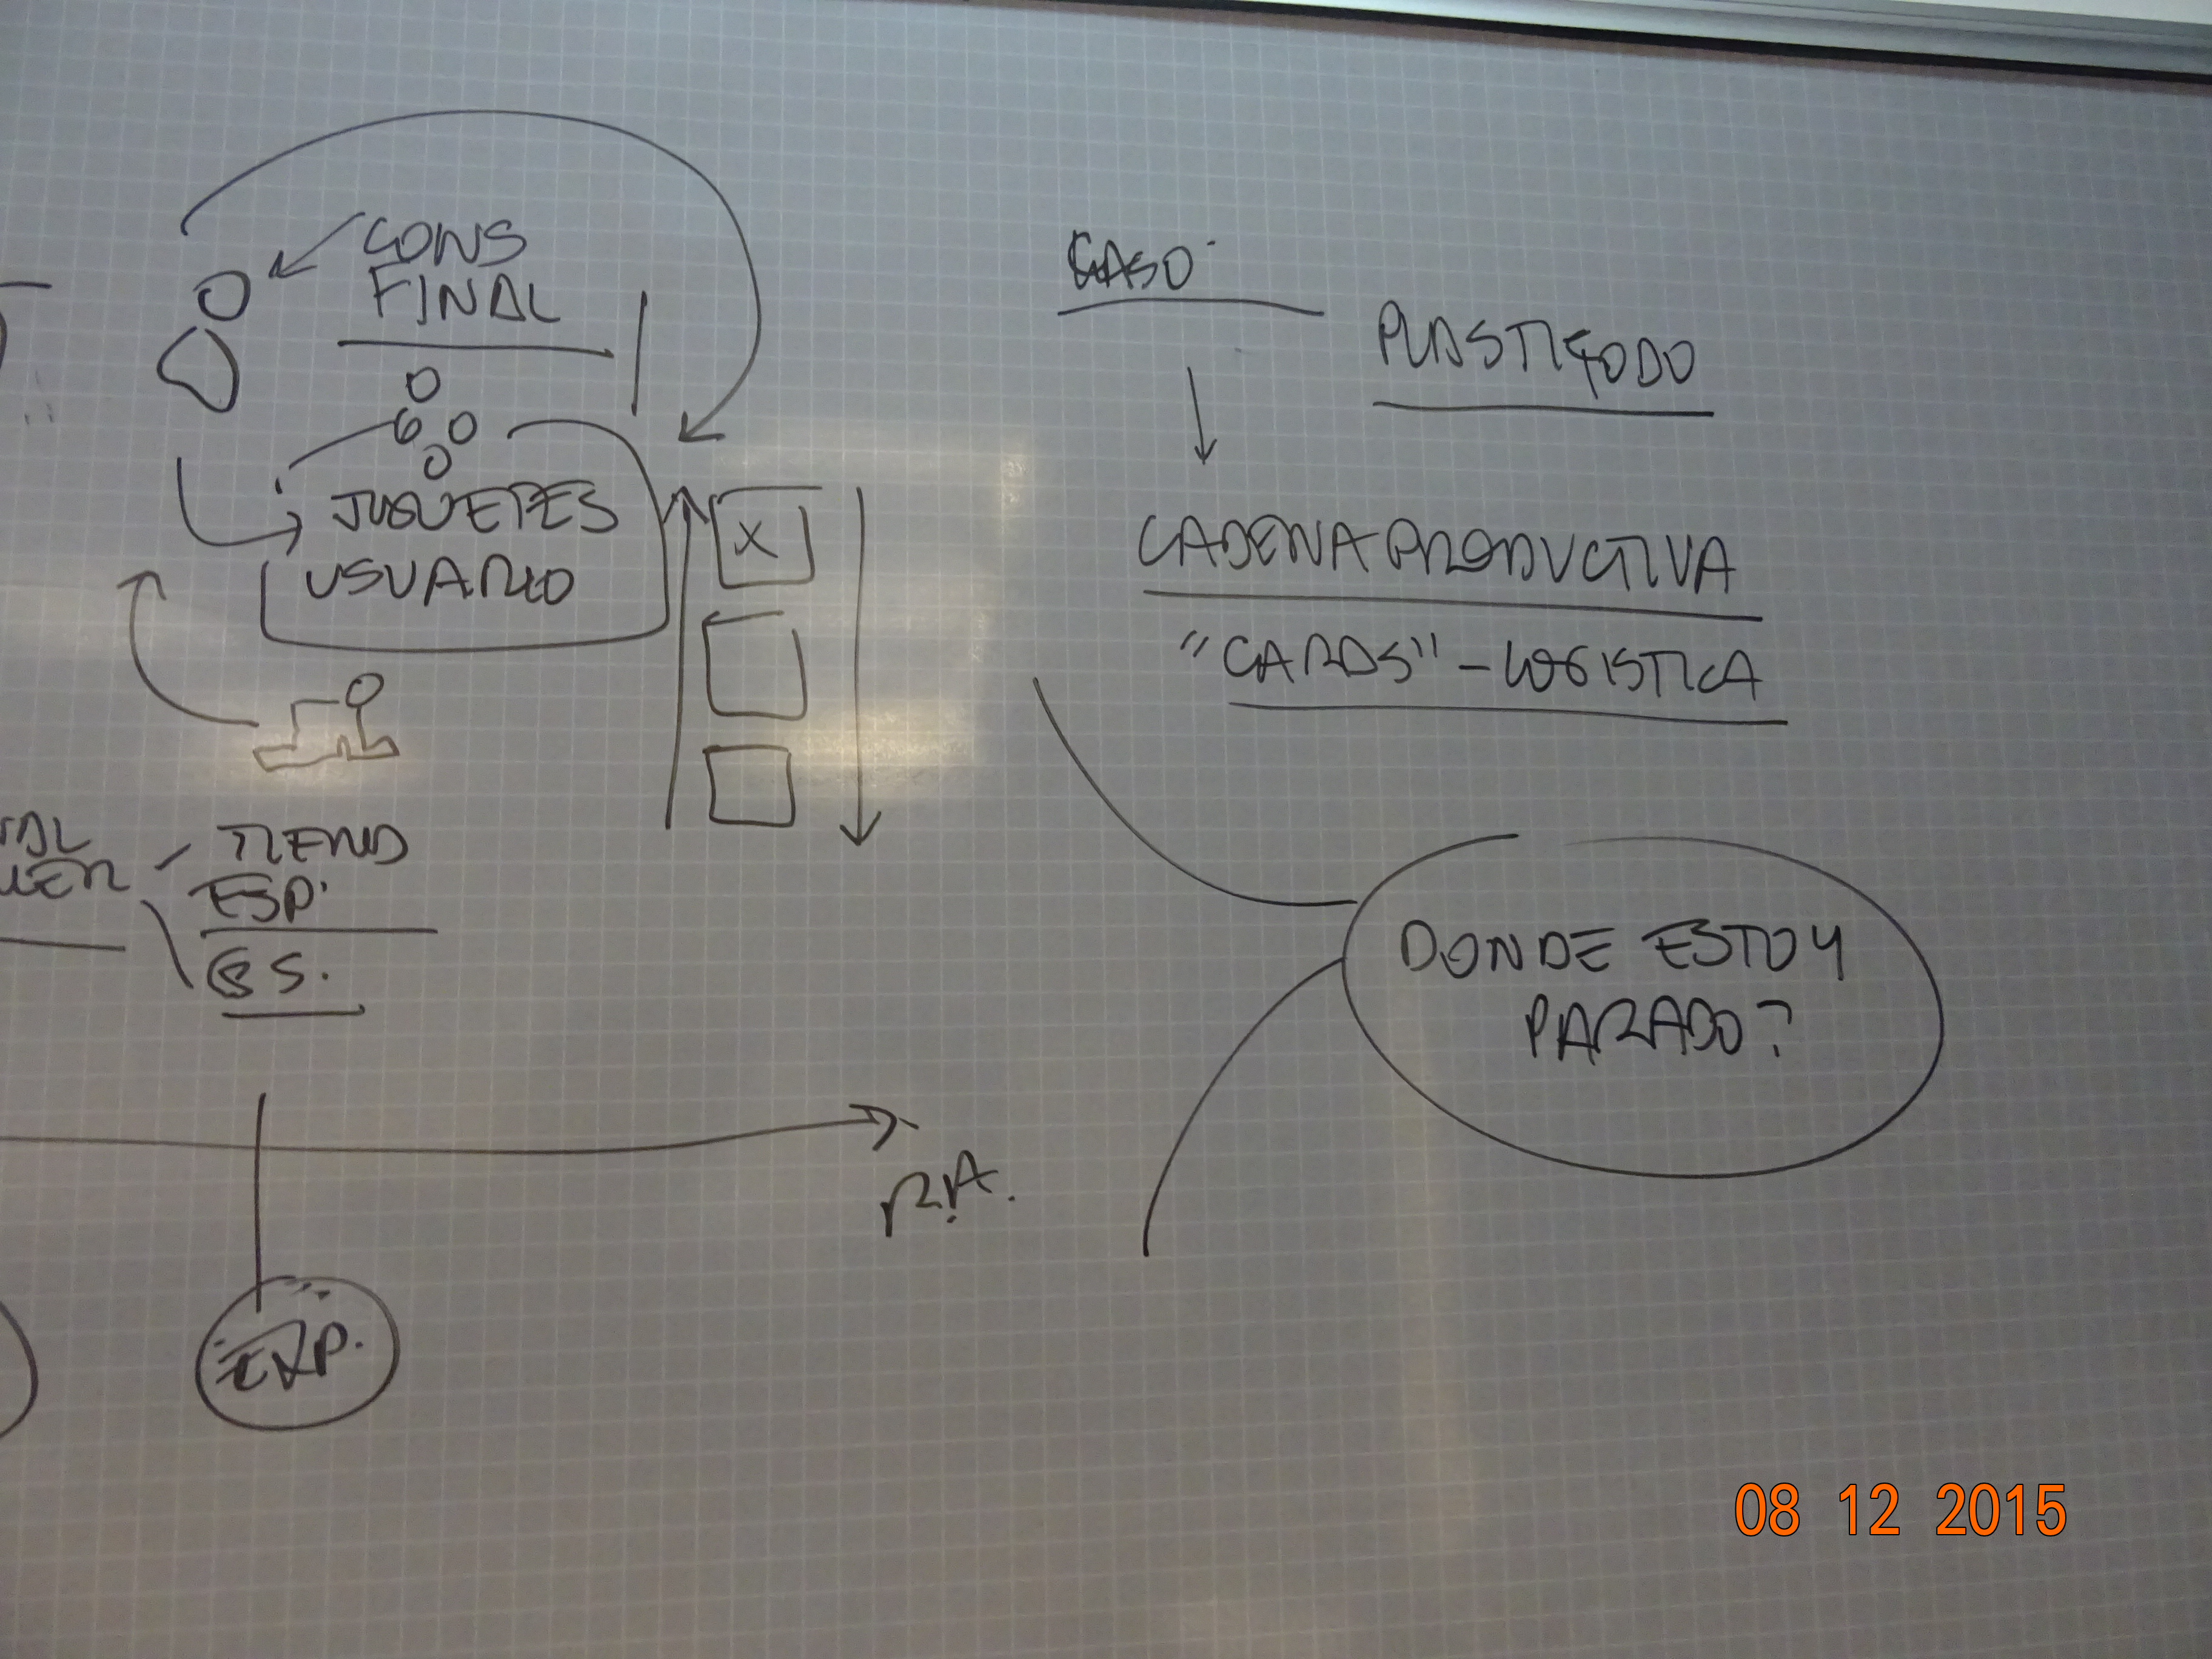 CONS
FINAL
JUGUETES
USUARIO
TIEND
ESP.
S.
R.A.
EXP.
CASO
CADENA PRODUCTIVA
"CARDS" - LOGISTICA
DONDE ESTOY
PARADO?
08 12 2015